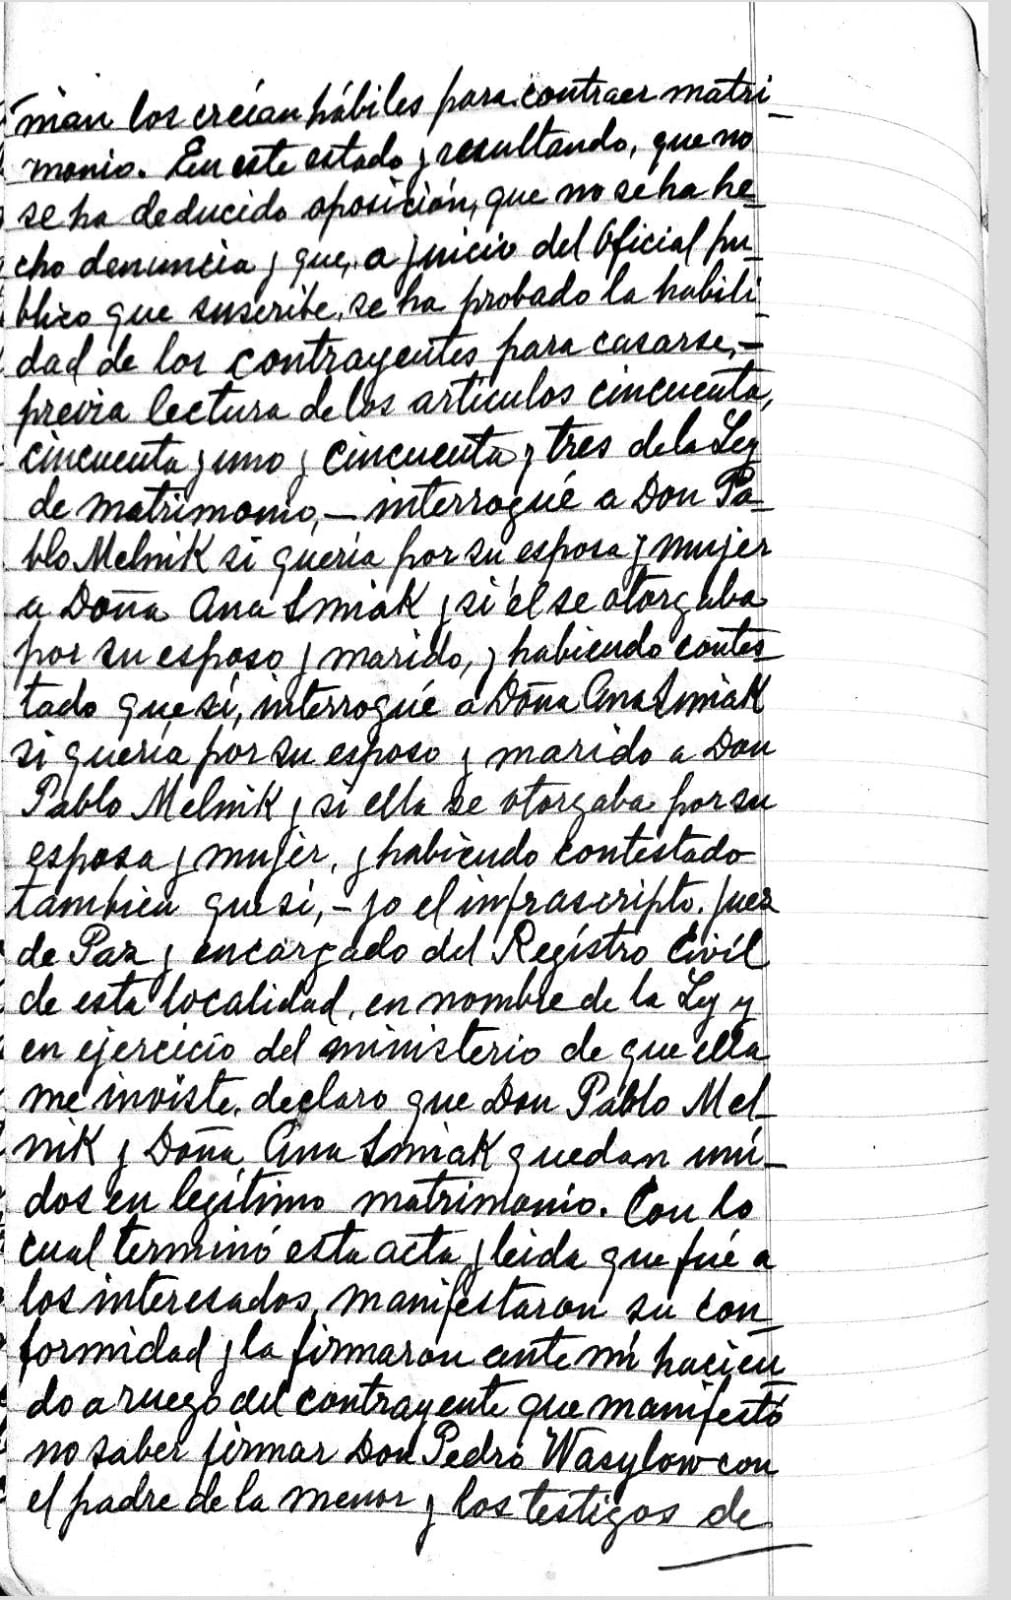 mian los creían hábiles para contraer matri-
monio. En este estado y resultando, que no
se ha deducido oposición, que no se ha he-
cho denuncia y que, a juicio del Oficial pú-
blico que suscribe, se ha probado la habili-
dad de los contrayentes para casarse,-
previa lectura de los artículos cincuenta,
cincuenta y uno y cincuenta y tres de la Ley
de matrimonio,- interrogué a Don Pa-
blo Melnik si quería por su esposa y mujer
a Doña Ana Smiak y si él se otorgaba
por su esposo y marido, y habiendo contes-
tado que sí, interrogué a Doña Ana Smiak
si quería por su esposo y marido a Don
Pablo Melnik y si ella se otorgaba por su
esposa y mujer, y habiendo contestado
tambien que si,- yo el infrascripto, Juez
de Paz y encargado del Registro Civil
de esta localidad, en nombre de la Ley y
en ejercicio del ministerio de que ella
me inviste, declaro que Don Pablo Mel-
nik y Doña Ana Smiak quedan uni-
dos en legítimo matrimonio. Con lo
cual terminó esta acta y leida que fué a
los interesados, manifestaron su con-
formidad y la firmaron ante mí hacien-
do a ruego del contrayente que manifestó
no saber firmar Don Pedro Wasylow con
el padre de la menor y los testigos de